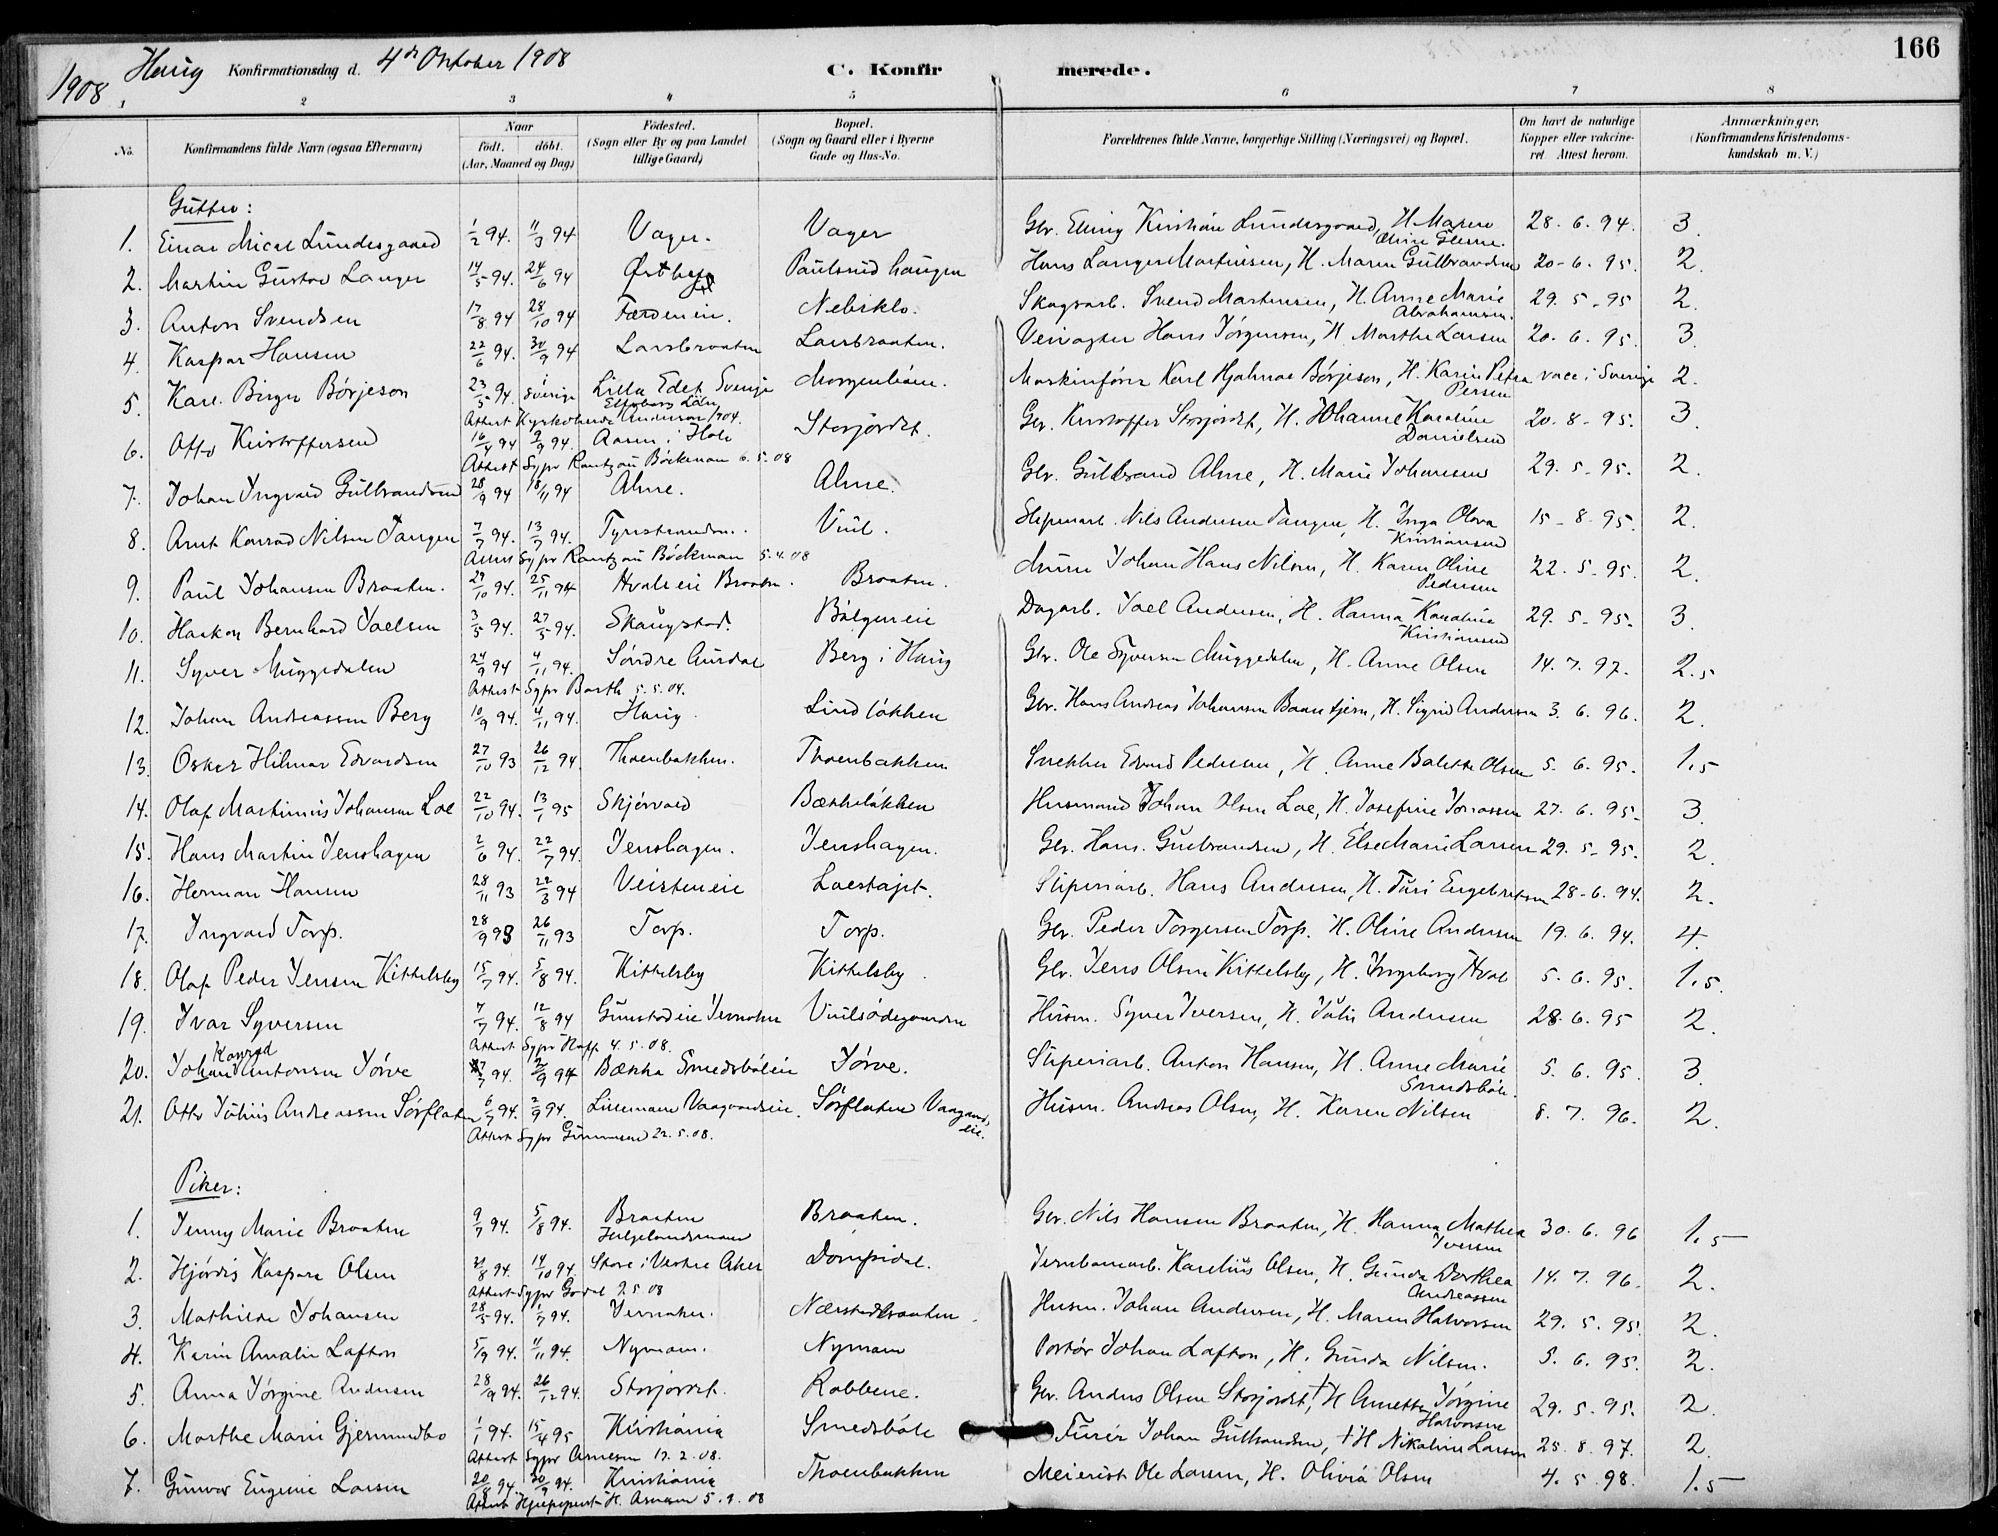 166
1908 Haug Konfirmationsdag d. 4de Oktober 1908 C. Konfirmerede.
1 2 3 4 5 6 7 8
No. Konfirmandens fulde Navn (ogsaa Efternavn) Naar födt. döbt. (Aar, Maaned og Dag) Födested. (Sogn eller By og paa Landet tillige Gaard) Bopæl. (Sogn og Gaard eller i Byerne Gade og Hus-No. Forældrenes fulde Navne, borgerlige Stilling (Næringsvei) og Bopæl. Om havt de naturlige Kopper eller vaccineret Attest herom. Anmærkninger, (Konfirmandens Kristendomskundskab m. V.)
Gutter:
1. Einar Mical Lundesgaard 1/2 94. 11/3 94 Vager. Vager Gbr. Elling Kristian Lundesgaard, H. Maren Oline 28. 6. 94. 3.
2. Martin Gustav Langer 14/5 94. 24/6 94 Østby Paulsrud haugen Hans Langer Martinsen, H. Maren Gulbrandsen 20-6. 95. 2.
3. Anton Svendsen 17/8 94 28/10 94 Færdeneie. Nebseklo. Skogsarb. Svend Martinsen, H. Anne Marie Abrahamsen. 29. 5-95 2.
4. Kaspar Hansen 22/6 94. 30/9 94 Larsbraaten Larsbraaten. Veivogter Hans Jörgensen, H. Marthe Larsen 20. 6. 95. 3.
5. Karl Birger Börjeson 23/5 94. sverige Lilla Edet Sverige Elfsborg Län Morgenlien. Maskinförer Karl Hjalmar Börjeson, H. Karin Petra Persen vacc i Sverige 2.
Attest Kyrkoherde Anderson 1904.
6. Otto Kristoffersen 16/4 94 2/9 94. Aasen i Hole Storjordet. Gbr. Kristoffer Storjordet, H. Johanne Karoline Danielsen 20. 8-95. 3.
Attest Sypr Rantzau Böckman 6. 5. 08
7. Johan Yngvald Gulbrandsen 28/9 94 18/11 94 Alme. Alme. Gbr. Gulbrand Alme, H. Marie Johansen 29. 5-95. 2.
8. Arnt Konrad Nilsen Tangen 7/7 94. 13/7 94. Tyristranden. Viul. Sliperiarb. Nils Andersen Tangen, H. Inga Olava Kristiansen 15-8-95. 2.
Attest Sypr Rantzau Böckman 5. 4. 08
9. Paul Johansen Braaten. 29/10 94. 25/11 94 Hvaleeie Braaten. Braaten. Murer Johan Hans Nilsen, H. Karen Oline Pedersen 22. 5-95. 2.
10. Haakon Bernhard Joelsen 3/5 94. 27/5 94. Skaugstad. Bölgeneie Dagarb. Joel Andersen, H. Hanna Karoline Kristiansen 29. 5-95. 3.
11. Syver Muggedalen 24/9 94 4/11 94. Söndre Aurdal Berg i Haug Gbr. Ole Syversen Muggedalen, H. Anne Olsen 14. 7. 97. 2.5
Attest Sypr Barth 5. 5. 04.
12. Johan Andreassen Berg 10/9 94. 4/11 94. Haug. Lindlökken Gbr. Hans Andreas Johansen Baantjern, H. Sigrid Andersen 3. 6. 96. 2.
13. Oskar Hilmar Edvardsen 27/10 93 26/12 94. Thoenbakken. Thoenbakken. Snekker Edvard Pedersen, H. Anne Bolette Olsen 5. 6. 95. 1.5
14. Olaf Martinius Johansen Loe 22/10 94. 13/1 95 Skjörvold Bækkelökken Husmand Johan Olsen Loe, H. Josefine Jonassen 27. 6. 95. 3.
15. Hans Martin Jenshagen 2/6 94. 22/7 94. Jenshagen. Jenshagen. Gbr. Hans Gulbrandsen, H. Else Marie Larsen 29. 5-95. 2.
16. Herman Hansen 28/11 93 22/3 94 Veisteneie Loestajet. Sliperiarb. Hans Andersen, H. Turi Engebretsen 28-6. 94. 2.
17. Ingvald Torp. 28/9 93 26/11 93 Torp. Torp. Gbr. Peder Torgersen Torp. H. Oline Andersen 19. 6. 94. 4.
18. Olaf Peder Jensen Kittelsby 15/7 94. 5/8 94. Kittelsby Kittelsby. Gbr. Jens Olsen Kittelsby, H. Ingeborg Hval 5. 6. 95. 1.5.
19. Ivar Syversen 7/7 94. 12/8 94 Gunstadeie Jevnaker Viulsödegaarden Husm. Syver Iversen, H. Julie Andersen 28. 6. 95 2.
Attest Sypr Hoff 4. 5. 08.
20. Johan Konrad Antonsen Jörve 7/7 94. 2/9 94 Bækka Smedsböleie Jörve. Sliperiarb. Anton Hansen, H. Anne Marie Smedsböle. 5. 6. 95. 3.
21. Otto Julius Andreassen Sörflaten 6/7 94. 2/9 94. Lillemoen Vaagaardseie. Sörflaten Vaagaardseie. Husm. Andreas Olsen, H. Karen Nilsen 8. 7. 96. 2.
Attest Sypr Gunnersen 22. 5. 08.
Piker:
1. Jenny Marie Braaten 9/7 94. 5/8 94. Braaten Helgelandsmoen Braaten. Gbr. Nils Hansen Braaten, H. Hanna Mathea Iversen 30. 6. 96 1.5
2. Hjördis Kaspara Olsen 21/8 94. 14/10 94. Store i Vestre Aker Dompidal. Jernbanearb. Karelius Olsen, H. Gunda Dorthea Andreassen 14. 7. 96. 2.
Attest Sypr Godal 2 5 08
3. Mathilde Johansen 28/5 94. 1/7 94. Jevnaker. Nærstadbraaten. Husm. Johan Andersen, H. Maren Halvorsen 29. 5. 95. 2.
4. Karin Amalie Lafton 5/9 94. 11/11 94. Nymoen. Nymoen Portör Johan Lafton, H. Gunda Nilsen. 5. 6. 95. 2.
5. Anna Jörgine Andersen 28/9 94. 26/12 94. Storjordet. Robbene. Gbr. Anders Olsen Storjordet, † H Annette Jörgine Halvorsen 29. 5. 95. 2.
6. Marthe Marie Gjermundbo 1/1 94. 15/4 95 Kristiania Smedsböle Furér Johan Gulbrandsen, † H Nikoline Larsen 25. 8. 97. 2.
Attest Sypr Arnesen 17. 2. 08.
7. Gunvor Eugenie Larsen 20/8 94. 30/9 94. Kristiania Thoenbakken Meierist Ole Larsen, H. Olivia Olsen 4. 5. 98. 1.5
Attest Hjælpeprest H. Arnesen 5. 9. 08